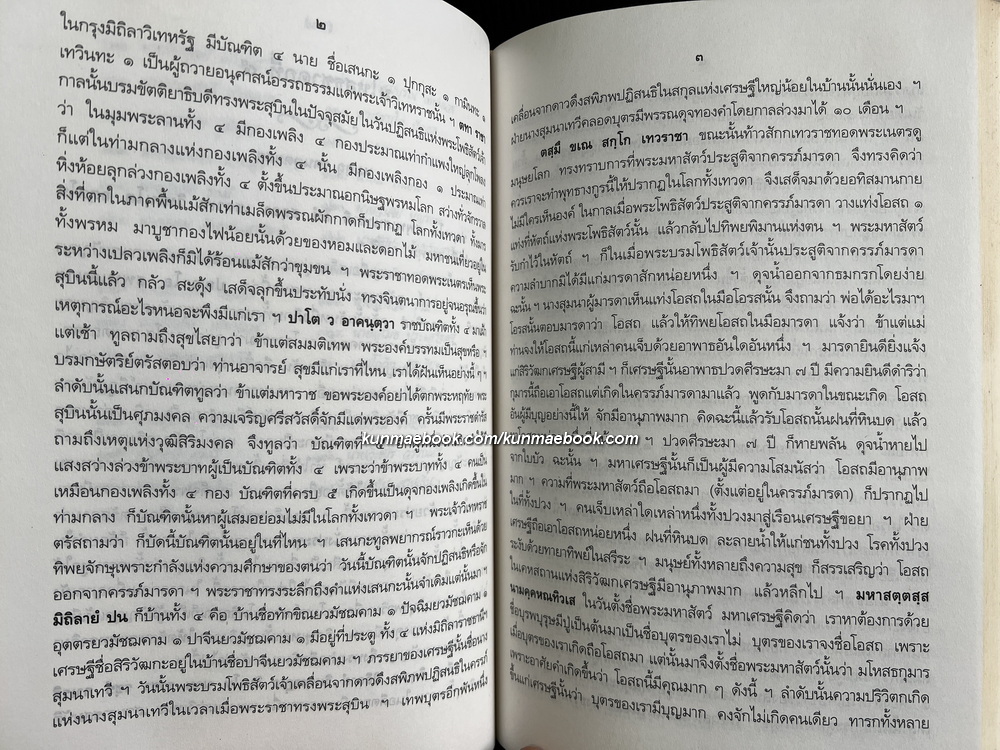 ๒
ในกรุงมิถิลาวิเทหรัฐ มีบัณฑิต ๔ นาย ชื่อเสนกะ ๑ ปุกกุสะ ๑ กามินทะ ๑
เทวินทะ ๑ เป็นผู้ถวายอนุศาสน์อรรถธรรมแด่พระเจ้าวิเทหราชนั้น ฯ ตทา ราชา
กาลนั้นบรมขัตติยาธิบดีทรงพระสุบินในปัจจุสมัยในวันปฏิสนธิแห่งพระโพธิสัตว์เจ้า
ว่า ในมุมพระลานทั้ง ๔ มีกองเพลิง ๔ กองประมาณเท่ากำแพงใหญ่ลุกโพลง
ก็แต่ในท่ามกลางแห่งกองเพลิงทั้ง ๔ นั้น มีกองเพลิงกอง ๑ ประมาณเท่า
หิ่งห้อยลุกล่วงกองเพลิงทั้ง ๔ ตั้งขึ้นประมาณอกนิษฐพรหมโลก สว่างทั่วจักรวาล
สิ่งที่ตกในภาคพื้นแม้สักเท่าเมล็ดพรรณผักกาดก็ปรากฏ โลกทั้งเทวดา ทั้งมาร
ทั้งพรหม มาบูชากองไฟน้อยนั้นด้วยของหอมและดอกไม้ มหาชนเที่ยวอยู่ใน
ระหว่างเปลวเพลิงก็มิได้ร้อนแม้สักว่าขุมขน ฯ พระราชาทอดพระเนตรเห็นพระ
สุบินนี้แล้ว กลัว สะดุ้ง เสด็จลุกขึ้นประทับนั่ง ทรงจินตนาการอยู่จนอรุณขึ้นว่า
เหตุการณ์อะไรหนอจะพึงมีแก่เรา ฯ ปาโต ว อาคนฺตฺวา ราชบัณฑิตทั้ง ๔ มาเฝ้า
แต่เช้า ทูลถามถึงสุขไสยาว่า ข้าแต่สมมติเทพ พระองค์บรรทมเป็นสุขหรือ ฯ
บรมกษัตริย์ตรัสตอบว่า ท่านอาจารย์ สุขมีแก่เราที่ไหน เราได้ฝันเห็นอย่างนี้ ๆ ฯ
ลำดับนั้นเสนกบัณฑิตทูลว่า ข้าแต่มหาราช ขอพระองค์อย่าได้ตกพระหฤทัย พระ
สุบินนั้นเป็นศุภมงคล ความเจริญศรีสวัสดิ์จักมีแด่พระองค์ ครั้นมีพระราชดำรัส
ถามถึงเหตุแห่งวุฒิสิริมงคล จึงทูลว่า บัณฑิตที่
แสงสว่างล่วงข้าพระบาทผู้เป็นบัณฑิตทั้ง ๔ เพราะว่าข้าพระบาททั้ง ๔ คนเป็น
เหมือนกองเพลิงทั้ง ๔ กอง บัณฑิตที่ครบ ๕ เกิดขึ้นเป็นดุจกองเพลิงเกิดขึ้นใน
ท่ามกลาง ก็บัณฑิตนั้นหาผู้เสมอย่อมไม่มีในโลกทั้งเทวดา ฯ พระเจ้าวิเทหราช
ตรัสถามว่า ก็บัดนี้บัณฑิตนั้นอยู่ในที่ไหน ฯ เสนกะทูลพยากรณ์ราวกะเห็นด้วย
ทิพยจักษุเพราะกำลังแห่งความศึกษาของตนว่า วันนี้บัณฑิตนั้นจักปฏิสนธิหรือจัก
ออกจากครรภ์มารดา ฯ พระราชาทรงระลึกถึงคำแห่งเสนกะนั้นจำเดิมแต่นั้นมา ฯ
มิถิลายํ ปน ก็บ้านทั้ง ๔ คือ บ้านชื่อทักขิณยวมัชฌคาม ๑ ปัจฉิมยวมัชฌคาม ๑
อุตตรยวมัชฌคาม ๑ ปาจีนยวมัชฌคาม ๑ มีอยู่ที่ประตู ทั้ง ๔ แห่งมิถิลาราชธานีฯ
เศรษฐีชื่อสิริวัฒกะอยู่ในบ้านชื่อปาจีนยวมัชฌคาม ฯ ภรรยาของเศรษฐีนั้นชื่อนาง
สุมนาเทวี ฯ วันนั้นพระบรมโพธิสัตว์เจ้าเคลื่อนจากดาวดึงสพิภพปฏิสนธิในครรภ์
แห่งนางสุมนาเทวีในเวลาเมื่อพระราชาทรงพระสุบิน ฯ เทพบุตรอีกพันหนึ่ง
๓
เคลื่อนจากดาวดึงสพิภพปฏิสนธิในสกุลแห่งเศรษฐีใหญ่น้อยในบ้านนั้นนั่นเอง ฯ
ฝ่ายนางสุมนาเทวีคลอดบุตรมีพรรณดุจทองคำโดยกาลล่วงมาได้ ๑๐ เดือน ฯ
ตสฺมึ ขเณ สกฺโก เทวราชา ขณะนั้นท้าวสักกเทวราชทอดพระเนตรดู
มนุษยโลก ทรงทราบการที่พระมหาสัตว์ประสูติจากครรภ์มารดา จึงทรงคิดว่า
ควรเราจะทำพุทธางกูรนี้ให้ปรากฏในโลกทั้งเทวดา จึงเสด็จมาด้วยอทิสมานกาย
ไม่มีใครเห็นองค์ ในกาลเมื่อพระโพธิสัตว์ประสูติจากครรภ์มารดา วางแท่งโอสถ ๑
แท่งที่หัตถ์แห่งพระโพธิสัตว์นั้น แล้วกลับไปทิพยพิมานแห่งตน ฯ พระมหาสัตว์
รับกำไว้ในหัตถ์ ฯ ก็ในเมื่อพระบรมโพธิสัตว์เจ้านั้นประสูติจากครรภ์มารดา
ความลำบากมิได้มีแก่มารดาสักหน่อยหนึ่ง ฯ ดุจน้ำออกจากธมกรกโดยง่าย
ฉะนั้น ฯ นางสุมนาผู้มารดาเห็นแท่งโอสถในมือโอรสนั้น จึงถามว่า พ่อได้อะไรมาฯ
โอรสนั้นตอบมารดาว่า โอสถ แล้วให้ทิพยโอสถในมือมารดา แจ้งว่า ข้าแต่แม่
ท่านจงให้โอสถนี้แก่เหล่าคนเจ็บด้วยอาพาธอันใดอันหนึ่ง ฯ มารดายินดียิ่งแจ้ง
แก่สิริวัฒกเศรษฐีผู้สามี ฯ ก็เศรษฐีนั้นอาพาธปวดศีรษะมา ๗ ปี มีความยินดีดำริว่า
กุมารนี้ถือเอาโอสถแต่เกิดในครรภ์มารดามาแล้ว พูดกับมารดาในขณะเกิด โอสถ
อันผู้มีบุญอย่างนี้ให้ จักมีอานุภาพมาก คิดฉะนี้แล้วรับโอสถนั้นฝนที่หินบด แล้ว
ฯ ปวดศีรษะมา ๗ ปี ก็หายพลัน ดุจน้ำหายไป
จากใบบัว ฉะนั้น ฯ มหาเศรษฐีนั้นก็เป็นผู้มีความโสมนัสว่า โอสถมีอานุภาพ
มาก ฯ ความที่พระมหาสัตว์ถือโอสถมา (ตั้งแต่อยู่ในครรภ์มารดา) ก็ปรากฏไป
ในที่ทั้งปวง ฯ คนเจ็บเหล่าใดเหล่าหนึ่งทั้งปวงมาสู่เรือนเศรษฐีขอยา ฯ ฝ่าย
เศรษฐีถือเอาโอสถหน่อยหนึ่ง ฝนที่หินบด ละลายน้ำให้แก่ชนทั้งปวง โรคทั้งปวง
ระงับด้วยทายาทิพย์ในสรีระ ฯ มนุษย์ทั้งหลายถึงความสุข ก็สรรเสริญว่า โอสถ
ในคหสถานแห่งสิริวัฒกเศรษฐีมีอานุภาพมาก แล้วหลีกไป ฯ มหาสตฺตสฺส
นามคฺคหณทิวเส ในวันตั้งชื่อพระมหาสัตว์ มหาเศรษฐีคิดว่า เราหาต้องการด้วย
ชื่อบุรพบุรุษมีปู่เป็นต้นมาเป็นชื่อบุตรของเราไม่ บุตรของเราจงชื่อโอสถ เพราะ
เมื่อบุตรของเราเกิดถือโอสถมา แต่นั้นมาจึงตั้งชื่อพระมหาสัตว์นั้นว่า มโหสธกุมาร
เพราะอาศัยคำเกิดขึ้นว่า โอสถนี้มีคุณมาก ๆ ดังนี้ ฯ ลำดับนั้นความปริวิตกเกิด
ขึ้นแก่เศรษฐีนั้นว่า บุตรของเรามีบุญมาก คงจักไม่เกิดคนเดียว ทารกทั้งหลาย
kunmaebook.com/kunmaebook.com